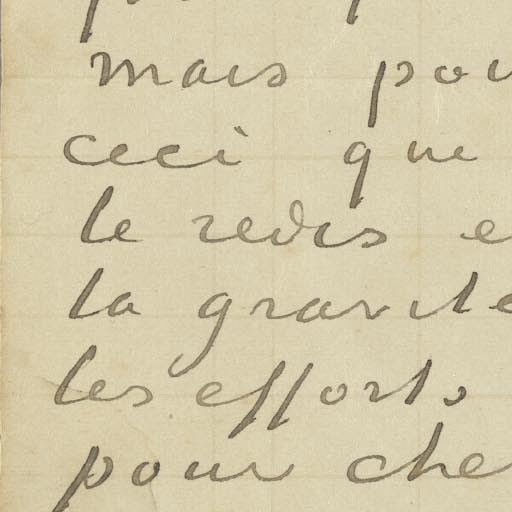 mais pou
ceci que
le redis e
la gravité
les efforts
pour che